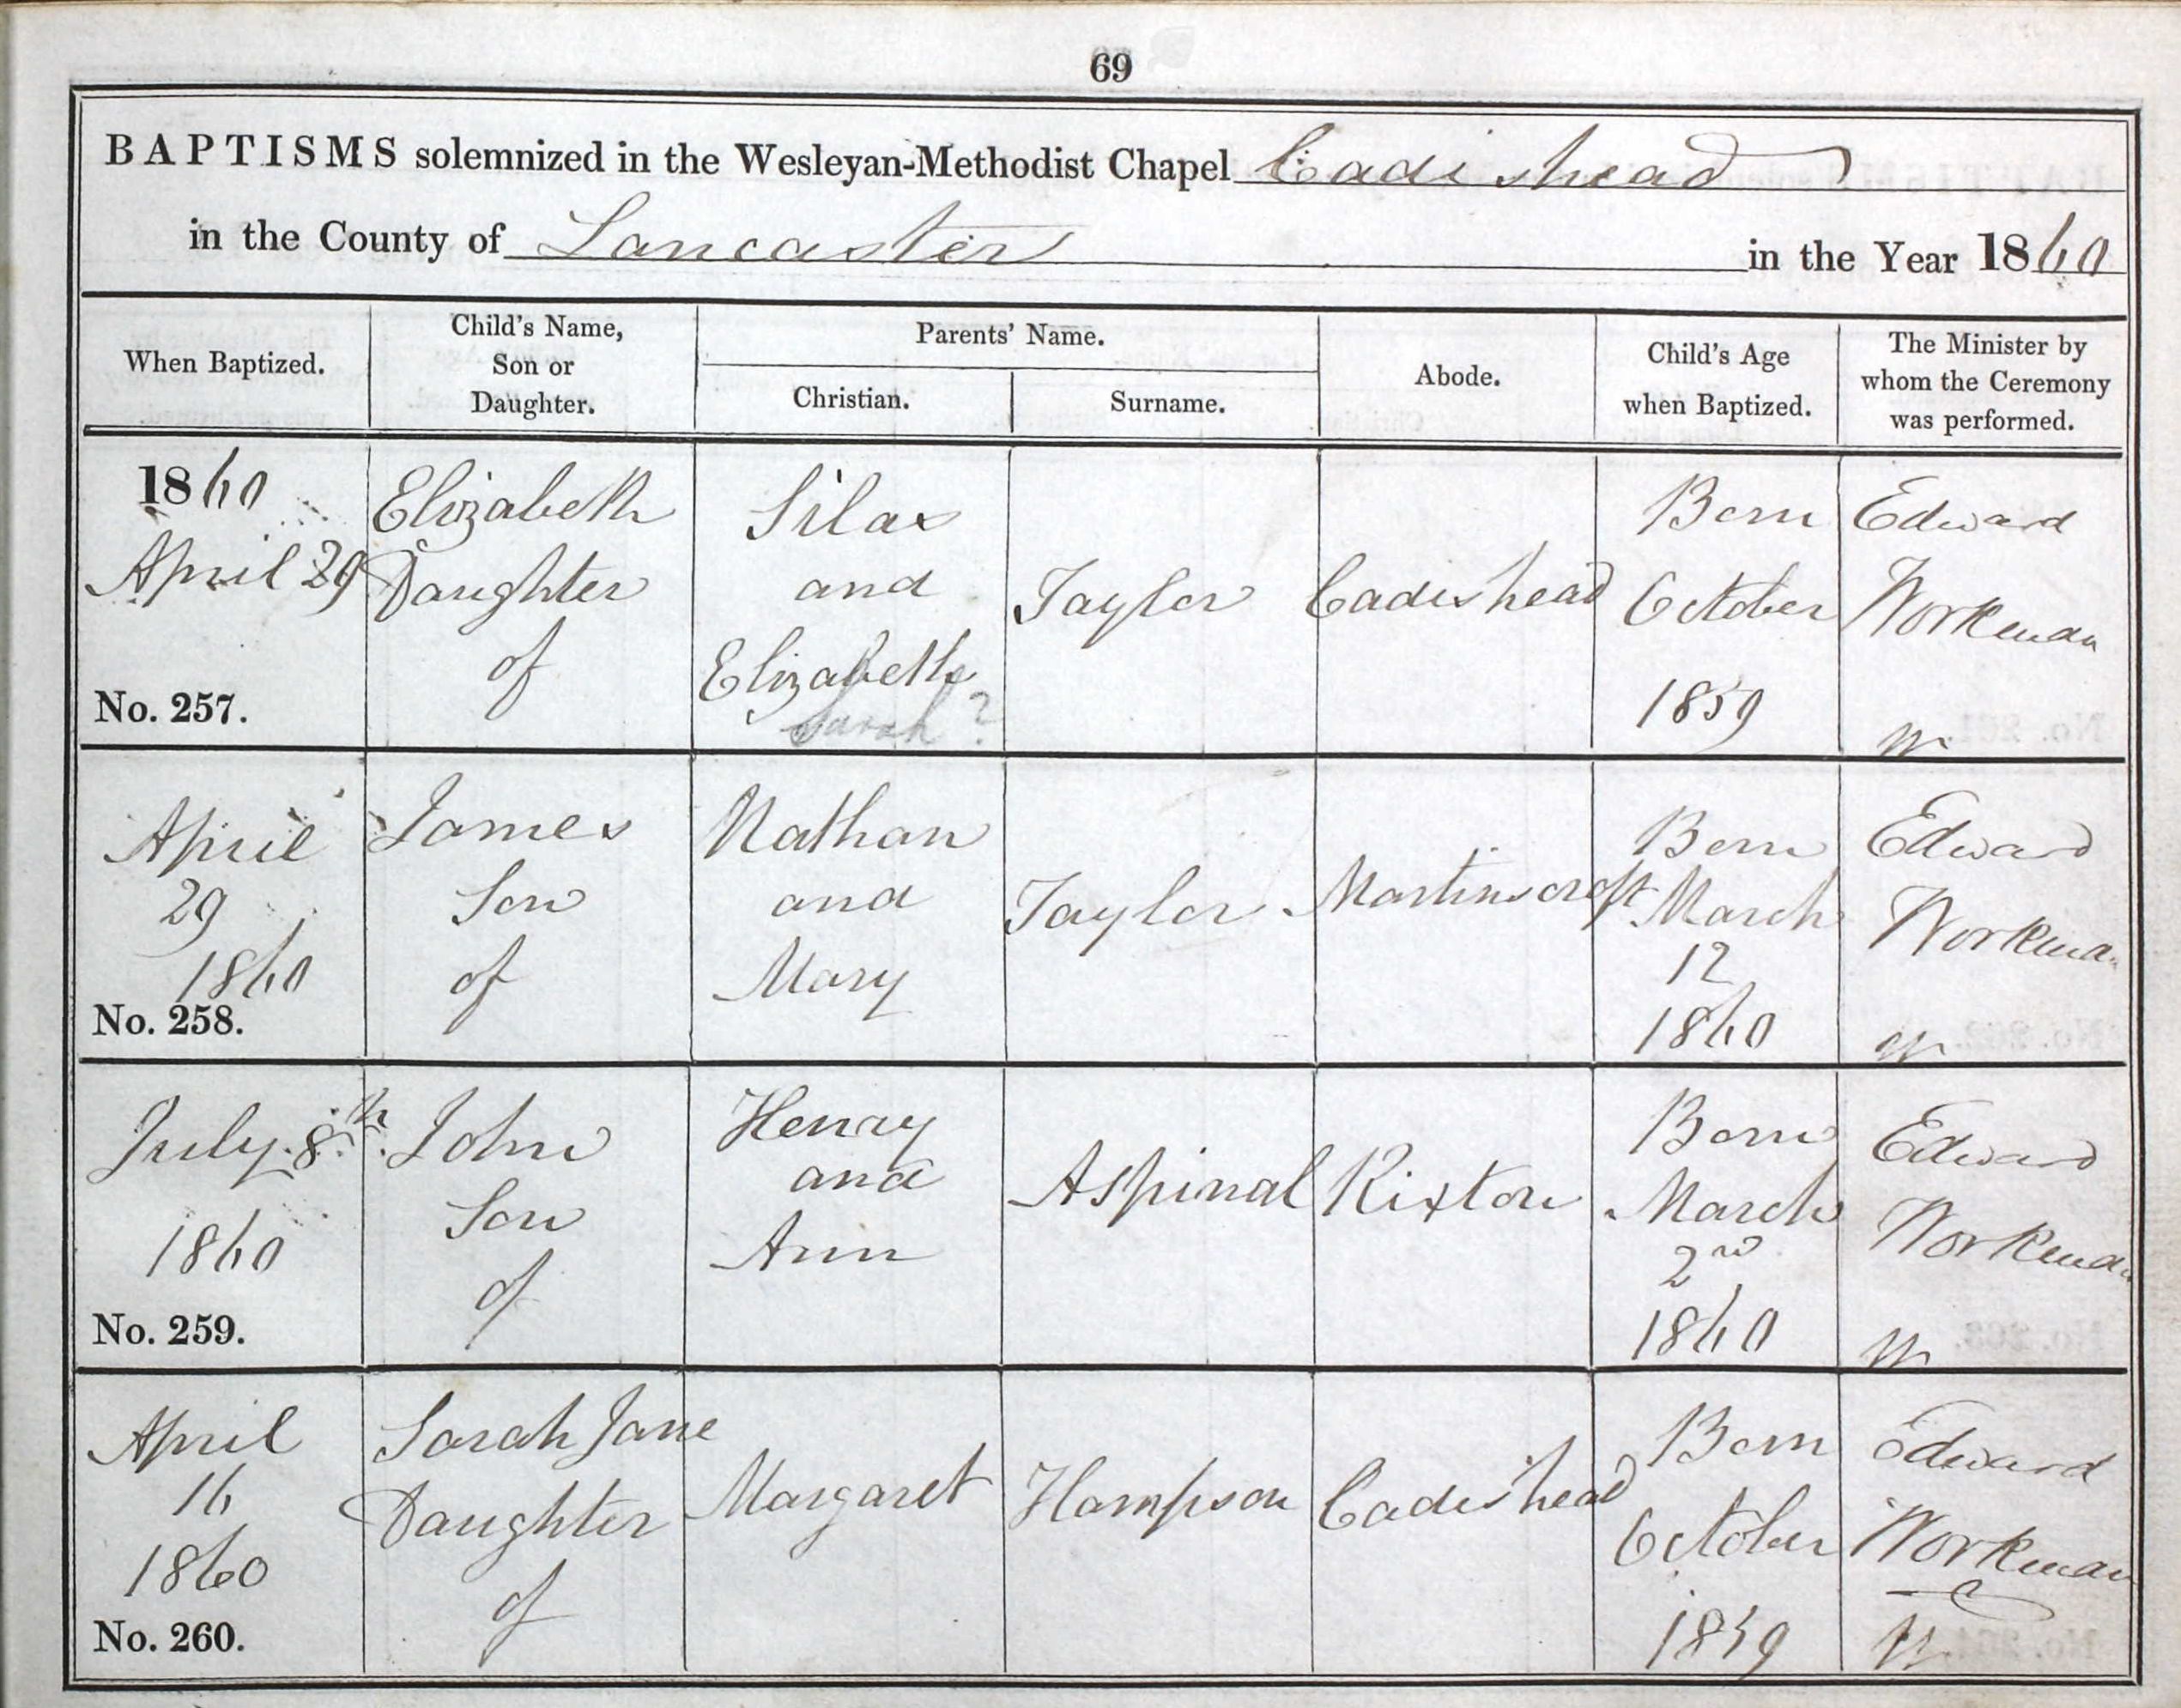 69
BAPTISMS solemnized in the Wesleyan-Methodist Chapel Cadishead
in the County of Lancaster in the Year 1860
When Baptized.
Child's Name,
Son or
Daughter.
Parents' Name.
Christian.
Surname.
Abode.
Child's Age
when Baptized.
The Minister by
whom the Ceremony
was performed.
1860
April 29
No. 257.
Elizabeth
Daughter
of
Silas
and
Elizabeth
Sarah?
Taylor
Cadishead
Born
October
1859
Edward
Workman
April
29
1860
No. 258.
James
Son
of
Nathan
and
Mary
Taylor
Martinscroft
Born
March
12
1860
Edward
Workman
July 8th
1860
No. 259.
John
Son
of
Henry
and
Ann
Aspinal
Rixton
Born
March
2nd
1860
Edward
Workman
April
16
1860
No. 260.
Sarah Jane
Daughter
of
Margaret
Hampson
Cadishead
Born
October
1859
Edward
Workman